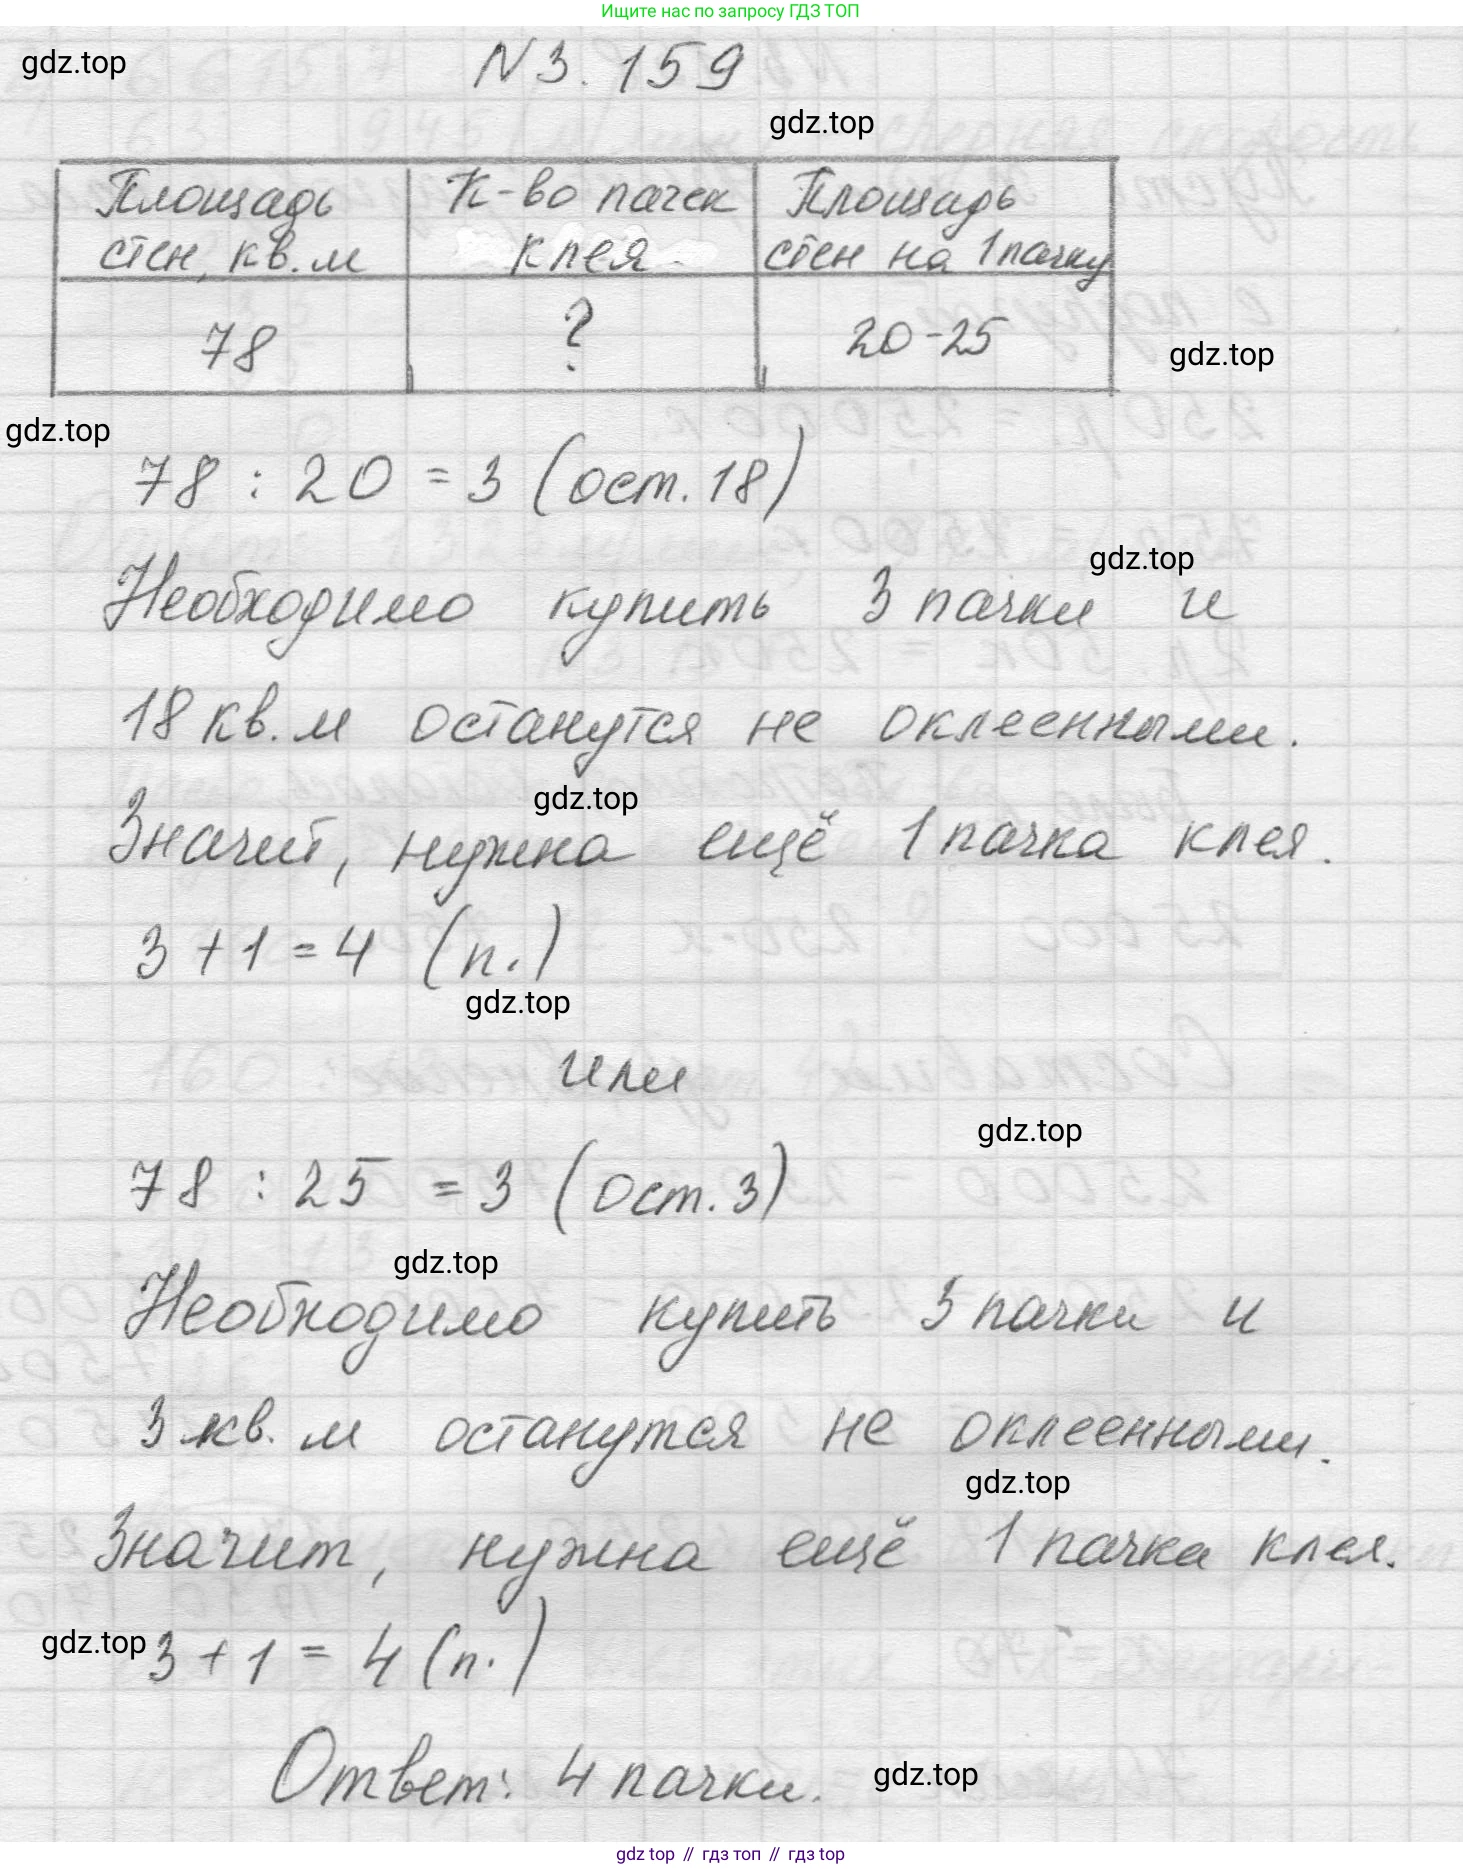 Ищите нас по запросу ГДЗ ТОП
gdz.top
N3.159
gdz.top
Площадь стен, кв.м
К-во пачек клея
Площадь стен на 1 пачку
78
?
20-25
gdz.top
gdz.top
78 : 20 = 3 (ост. 18)
gdz.top
Необходимо купить 3 пачки и
18 кв.м останутся не оклеенными.
gdz.top
Значит, нужна ещё 1 пачка клея.
3 + 1 = 4 (п.)
gdz.top
или
gdz.top
78 : 25 = 3 (ост. 3)
gdz.top
Необходимо купить 3 пачки и
3 кв. м останутся не оклеенными.
gdz.top
Значит, нужна ещё 1 пачка клея.
gdz.top
3 + 1 = 4 (п.)
Ответ: 4 пачки.
gdz.top
gdz top // гдз топ // гдз top